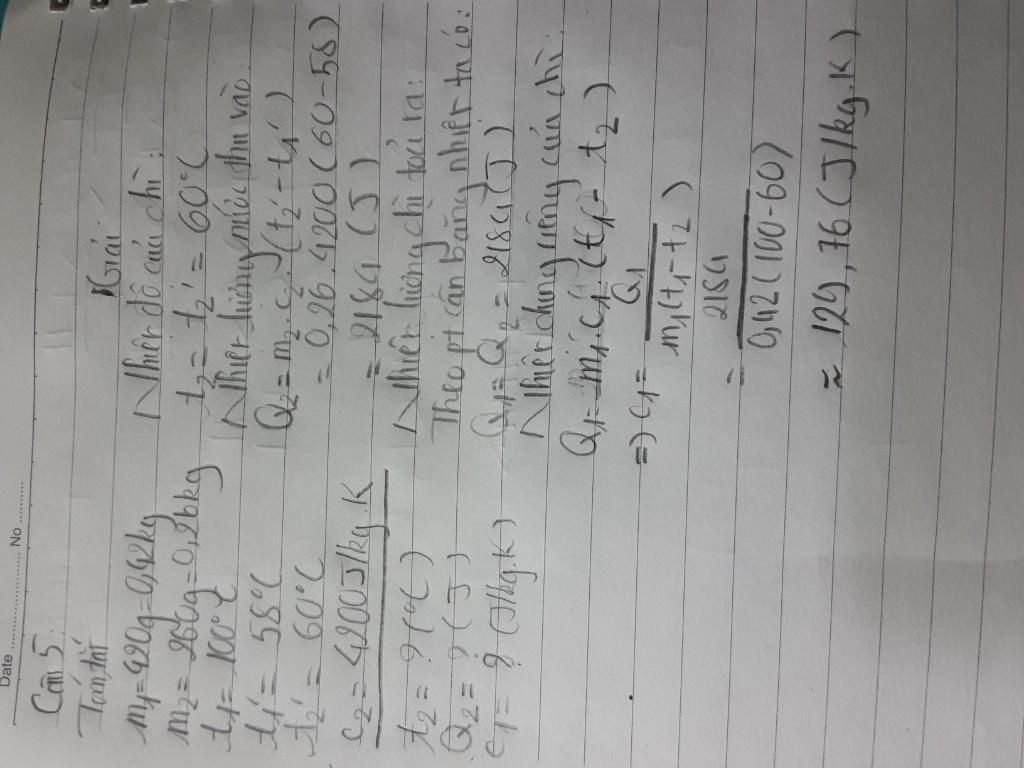 Date ............ No ............
Câu 5:
Tóm tắt
m₁ = 420g = 0,42kg
m₂ = 260g = 0,26kg
t₁ = 100°C
t₁' = 58°C
t₂' = 60°C
c₂ = 4200J/kg.K
t₂ = ? (°C)
Q₂ = ? (J)
c₁ = ? (J/kg.K)
Giải
Nhiệt độ của chì:
t₂ = t₂' = 60°C
Nhiệt lượng nước thu vào:
Q₂ = m₂.c₂.(t₂' - t₁')
= 0,26.4200(60-58)
= 2184 (J)
Nhiệt lượng chì toả ra:
Theo pt cân bằng nhiệt ta có:
Q₁ = Q₂ = 2184(J)
Nhiệt dung riêng của chì:
Q₁ = m₁.c₁.(t₁ - t₂)
=> c₁ = Q₁ / m₁(t₁-t₂)
= 2184 / 0,42(100-60)
≈ 129,76 (J/kg.K)